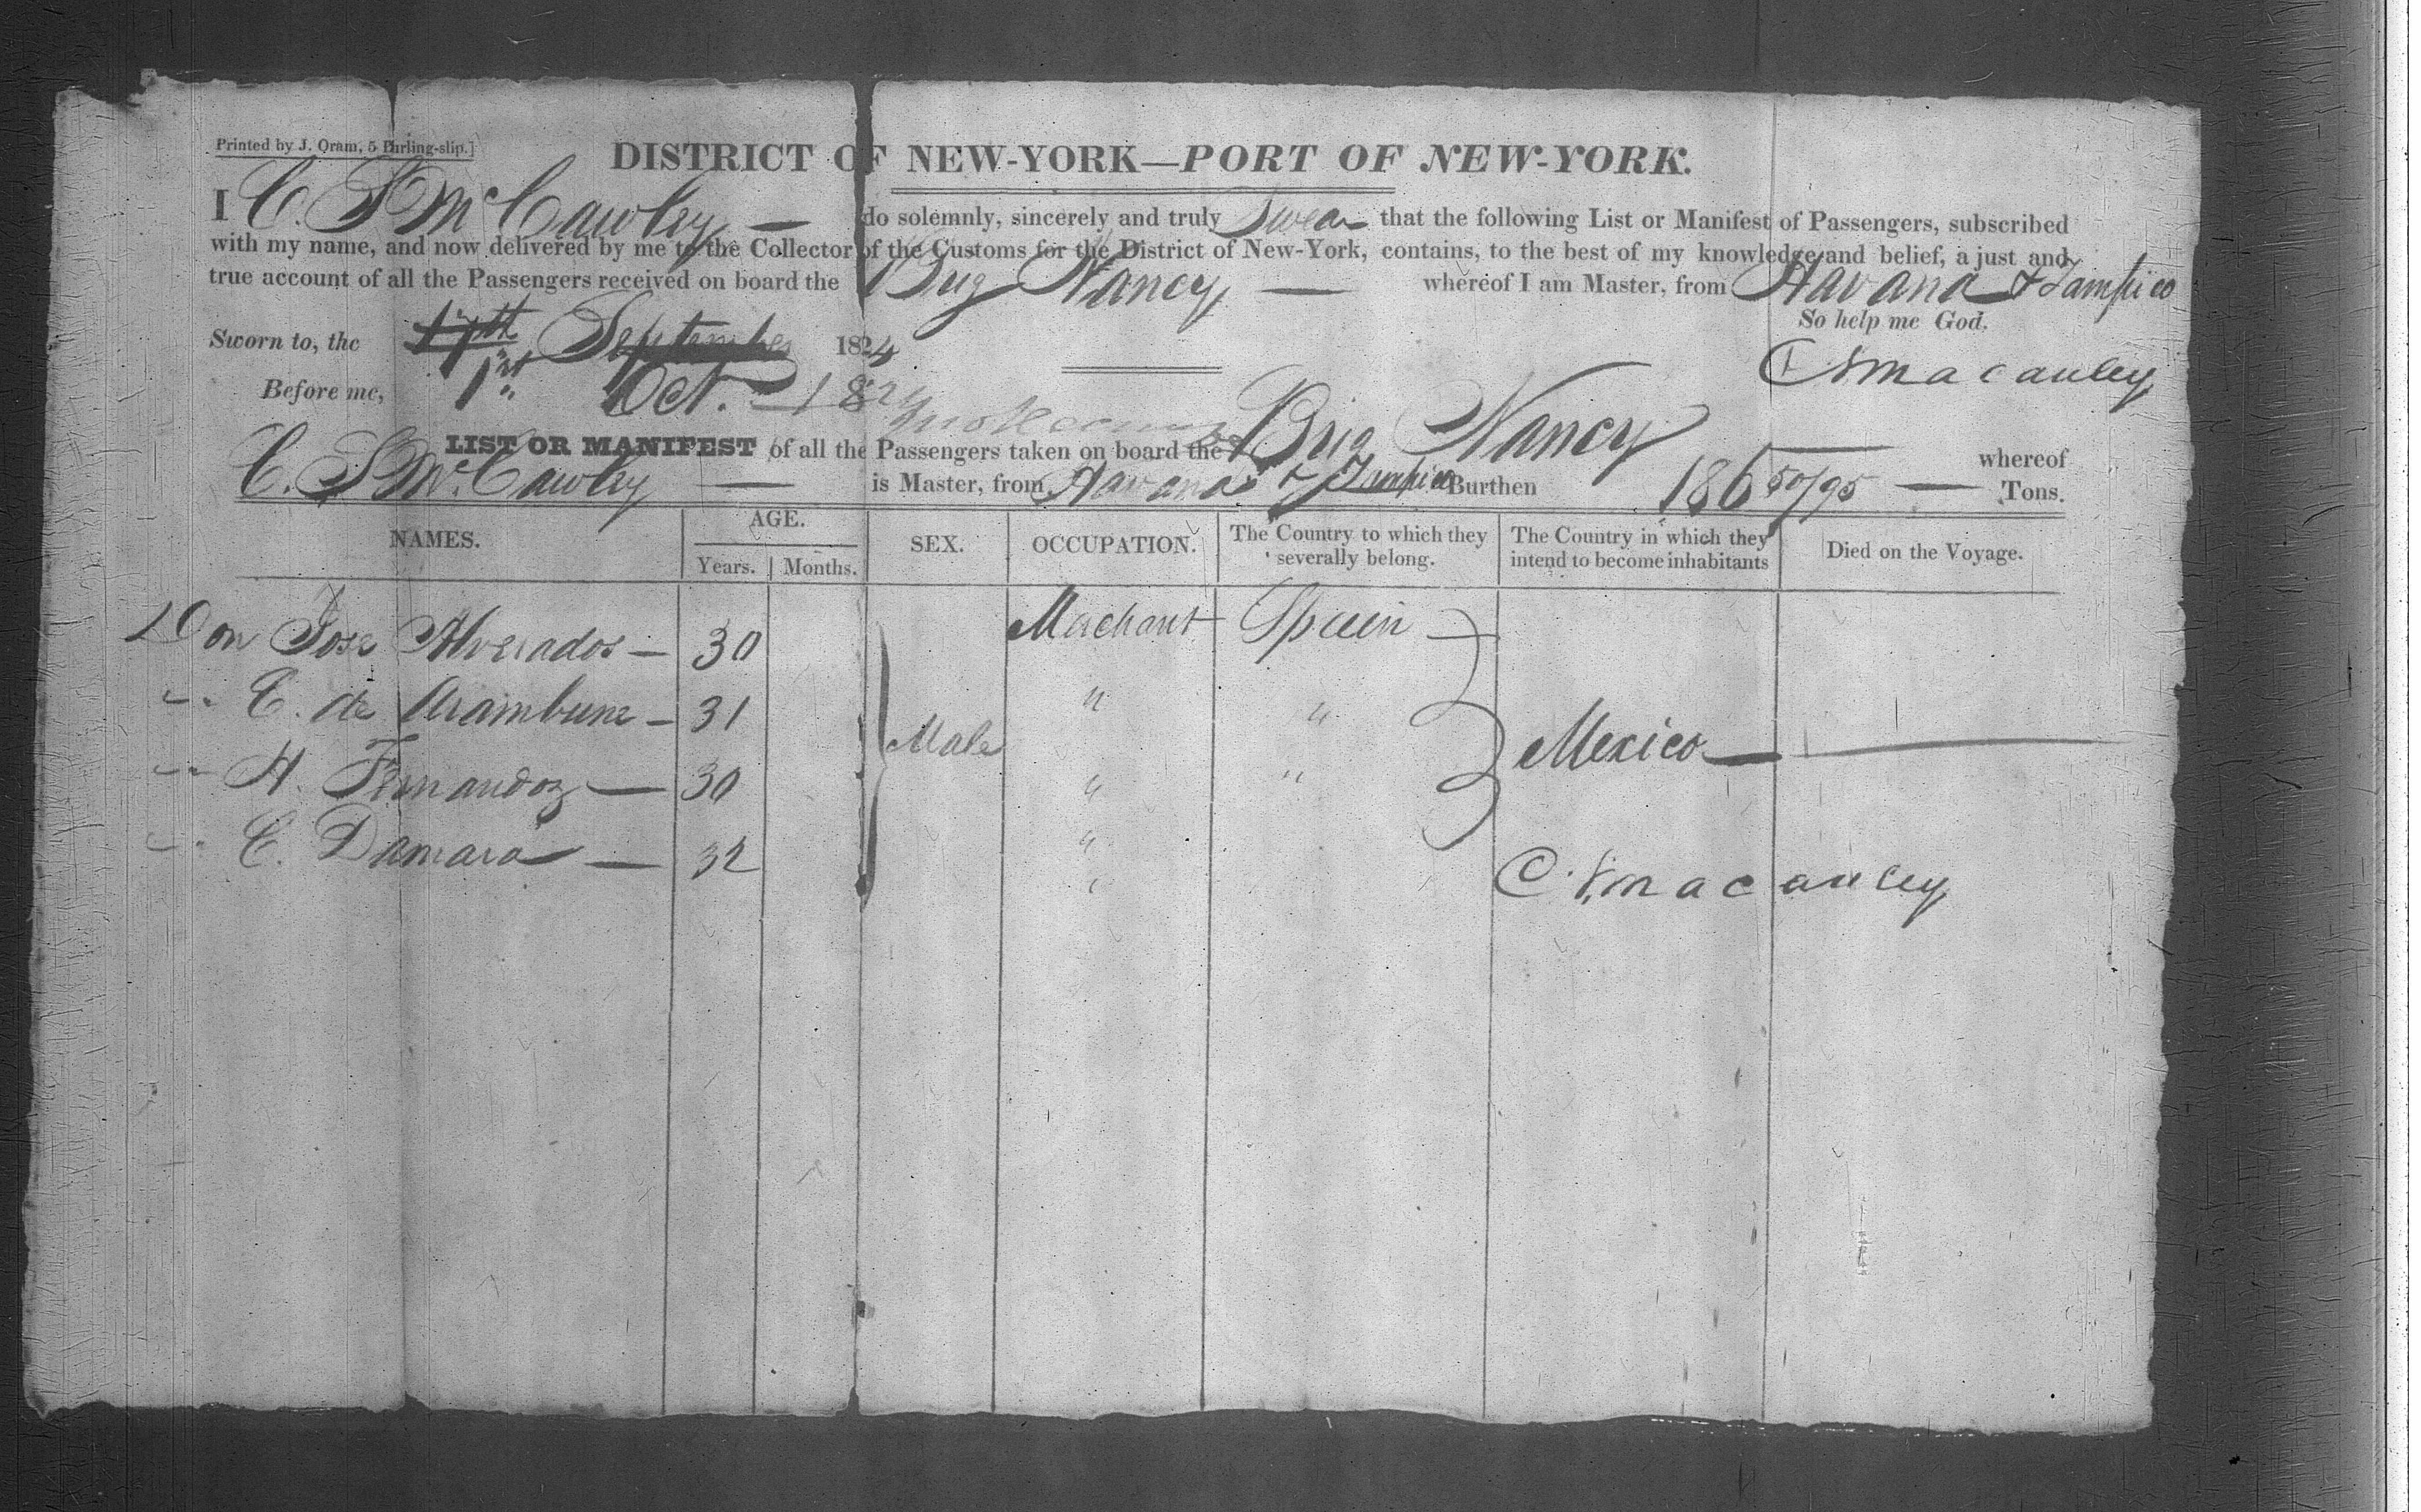 Printed by J. Oram, 5 Burling-slip.]
DISTRICT OF NEW-YORK—PORT OF NEW-YORK.
I C. S. McCawley — do solemnly, sincerely and truly Swear that the following List or Manifest of Passengers, subscribed
with my name, and now delivered by me to the Collector of the Customs for the District of New-York, contains, to the best of my knowledge and belief, a just and
true account of all the Passengers received on board the Brig Nancy — whereof I am Master, from Havana & Tampico
So help me God.
Sworn to, the 17th September 1824
1st Oct. 1824
C S Macauley
Before me,
LIST OR MANIFEST of all the Passengers taken on board the Brig Nancy — whereof
C. S. McCawley — is Master, from Havana & Tampico Burthen 186 50/95 — Tons.
NAMES. AGE. SEX. OCCUPATION. The Country to which they severally belong. The Country in which they intend to become inhabitants Died on the Voyage.
Years. Months.
Don Jose Alverados — 30 Merchant Spain
" C. de Arambune — 31 " "
Male Mexico —
" H. Fernandoz — 30 " "
" C. Damara — 32 "
"
C. S. Macauley